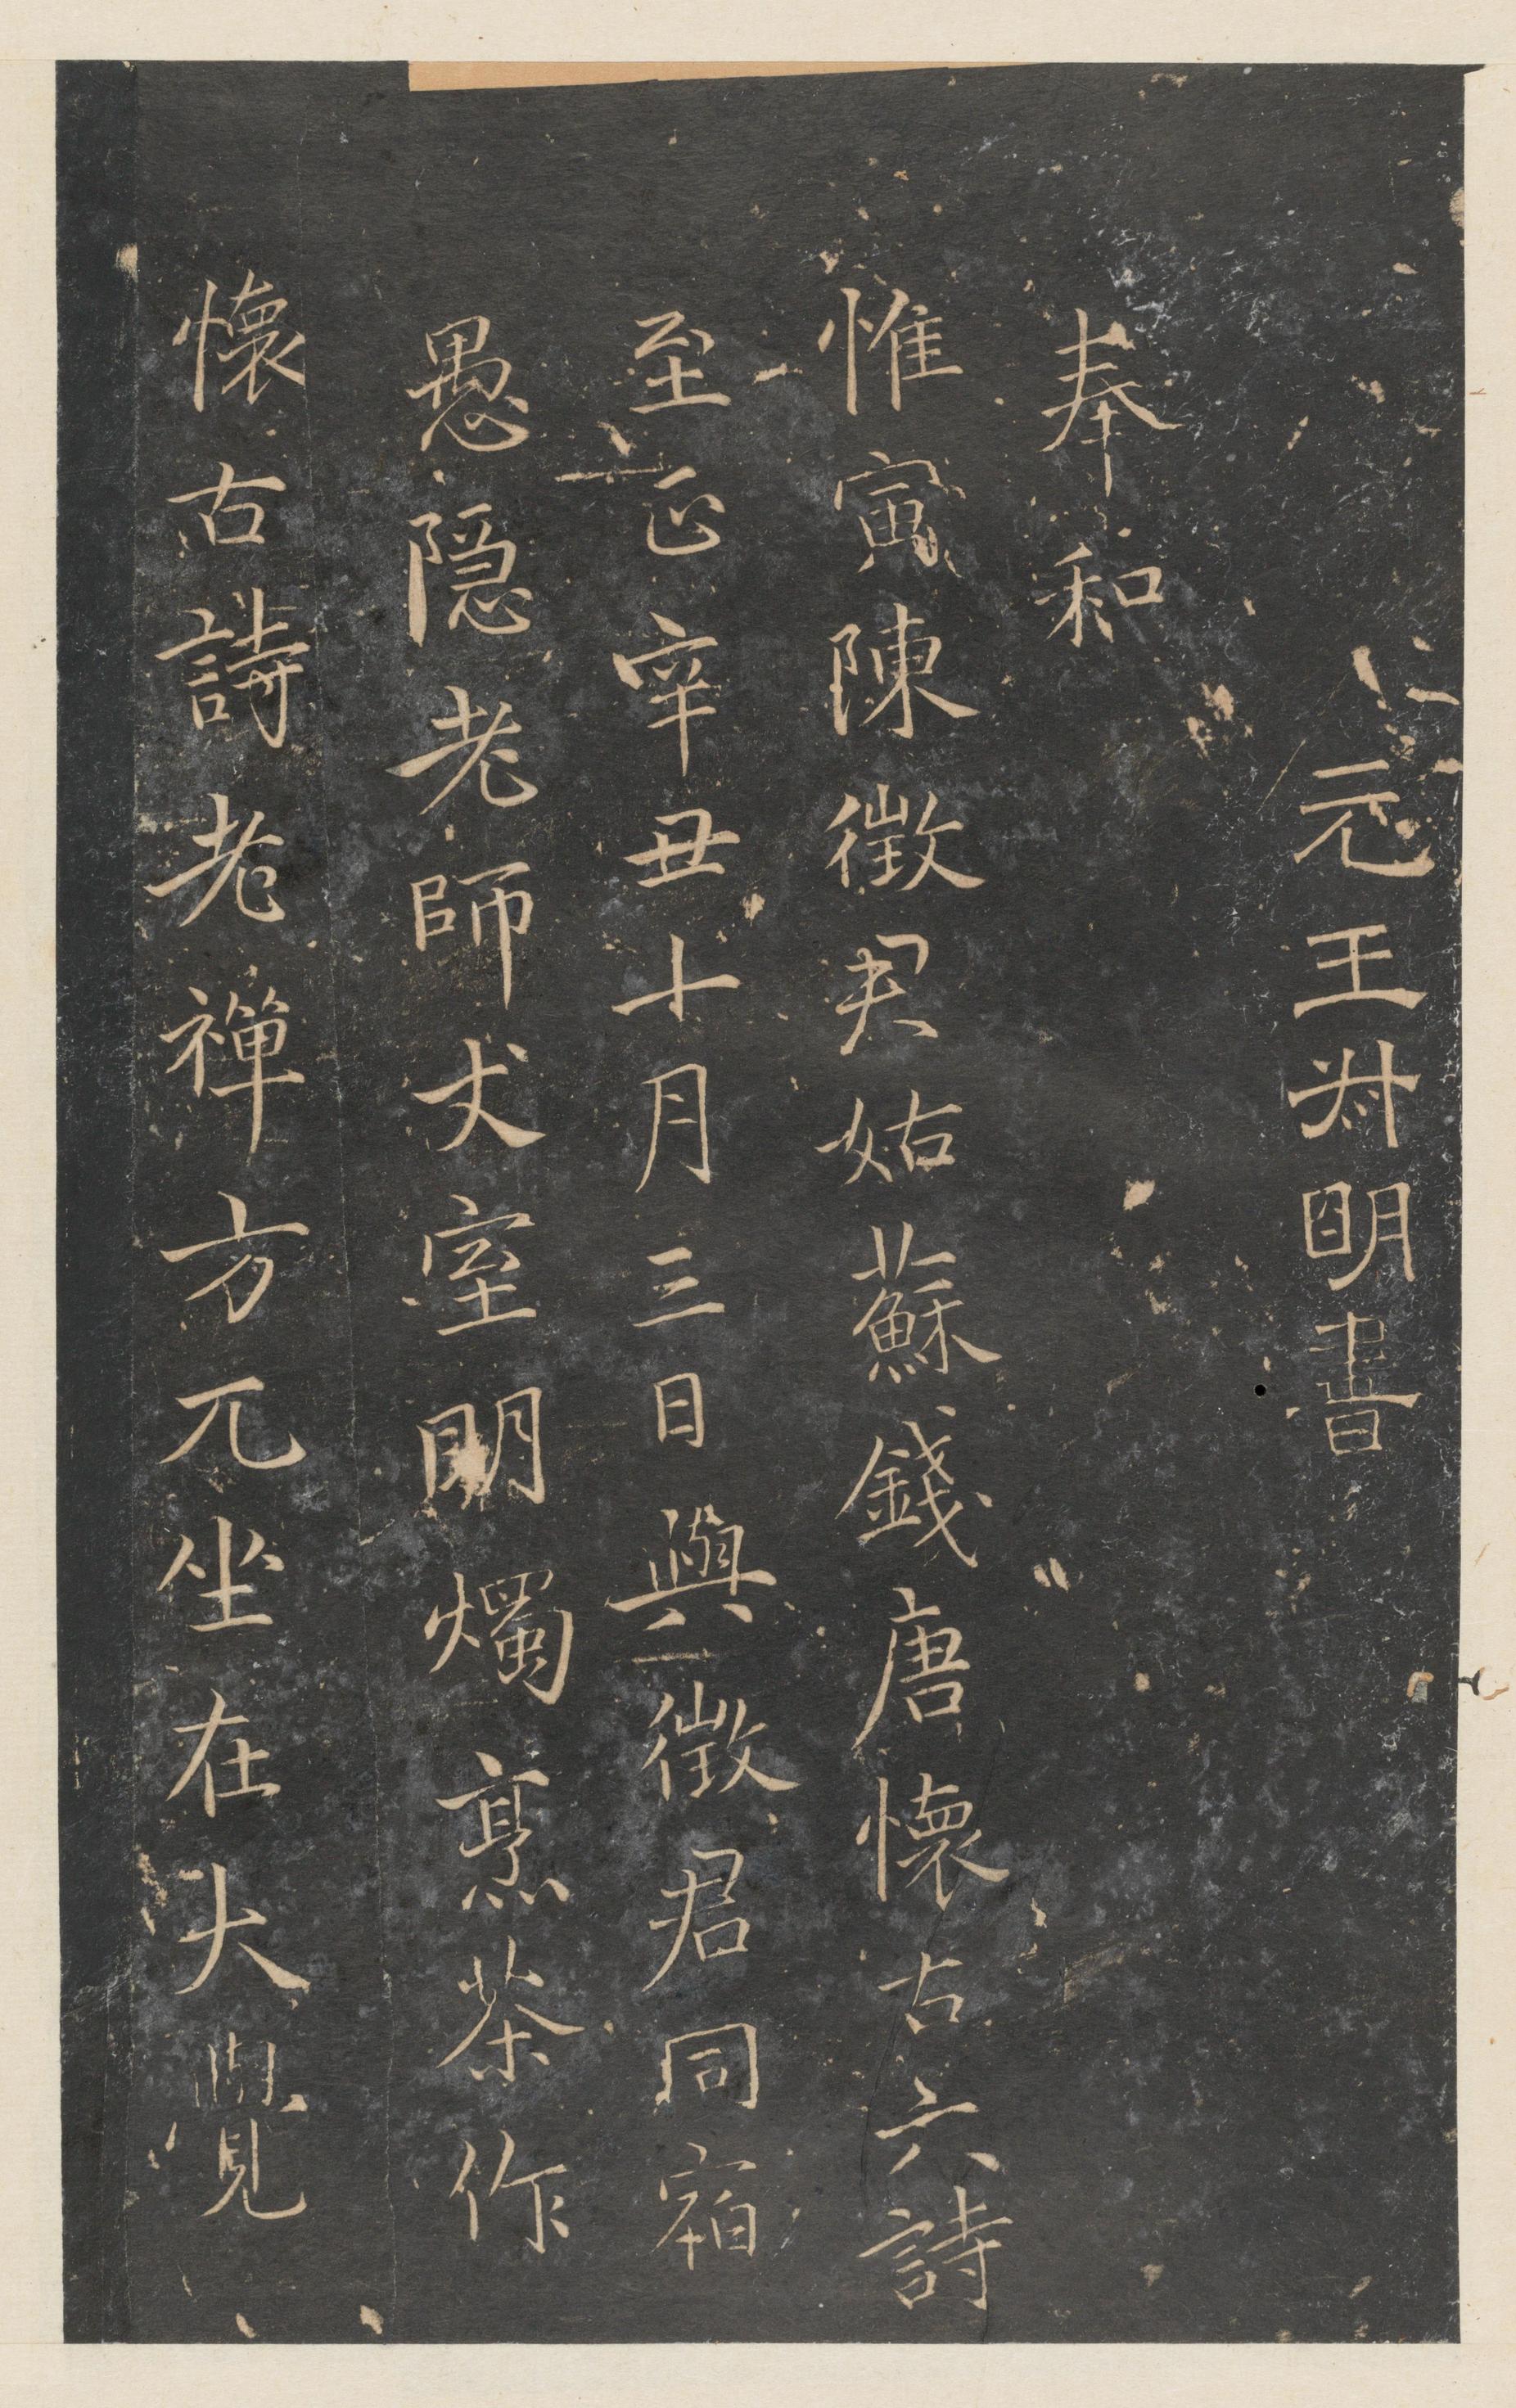 元王叔明書
奉和
惟寅陳徵君姑蘇錢唐懷古六詩
至正辛丑十月三日與徵君同宿
愚隱老師丈室明燭烹茶作
懷古詩老禪方兀坐在大覺